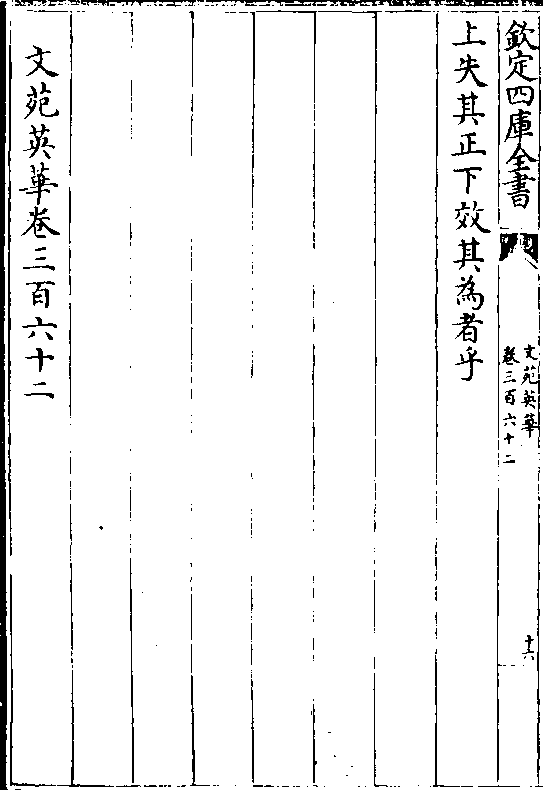 欽定四庫全書
文苑英華
卷三百六十二
十六
上失其正下效其為者乎
文苑英華卷三百六十二